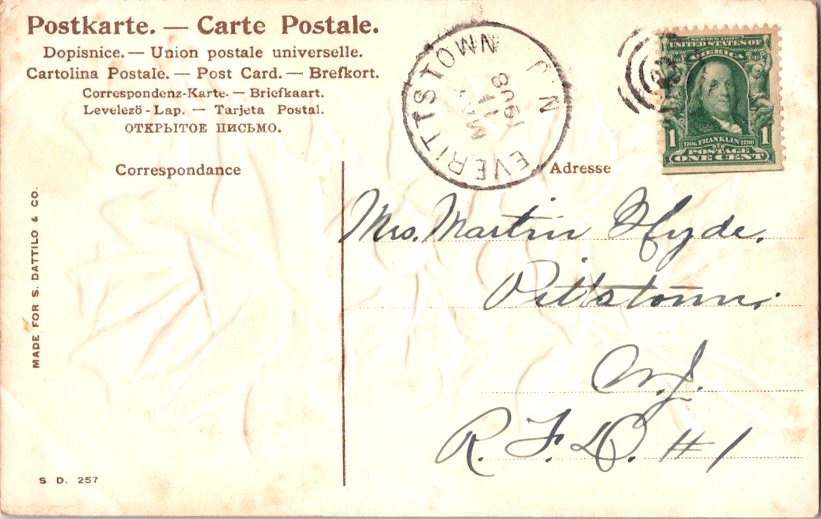 Postkarte. — Carte Postale.
Dopisnice. — Union postale universelle.
Cartolina Postale. — Post Card. — Brefkort.
Correspondenz-Karte. — Briefkaart.
Levelezö-Lap. — Tarjeta Postal.
ОТКРЫТОЕ ПИСЬМО.
EVERITTSTOWN N.J.
11
1908
UNITED STATES OF
AMERICA
1 1
1706 FRANKLIN 1790
POSTAGE
ONE CENT
Correspondance
Adresse
Mrs. Martin Hyde.
Pittstown.
N.J.
R. F. D. #1
MADE FOR S. DATTILO & CO.
S D. 257